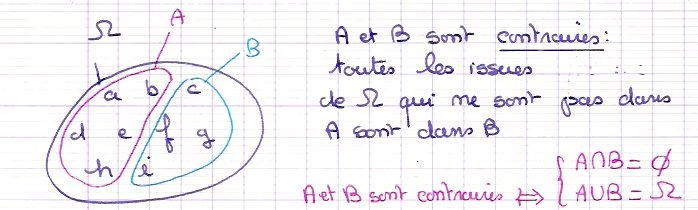 Ω
A
B
a b c
d e f g
h i
A et B sont contraires:
toutes les issues
de Ω qui ne sont pas dans
A sont dans B
A et B sont contraires ⇔ { A∩B = ∅
A∪B = Ω